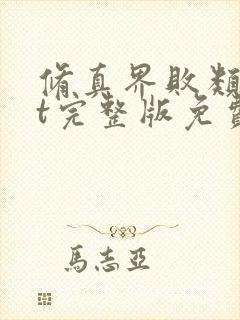 脩真界敗類
t完整版免費
馬志亞